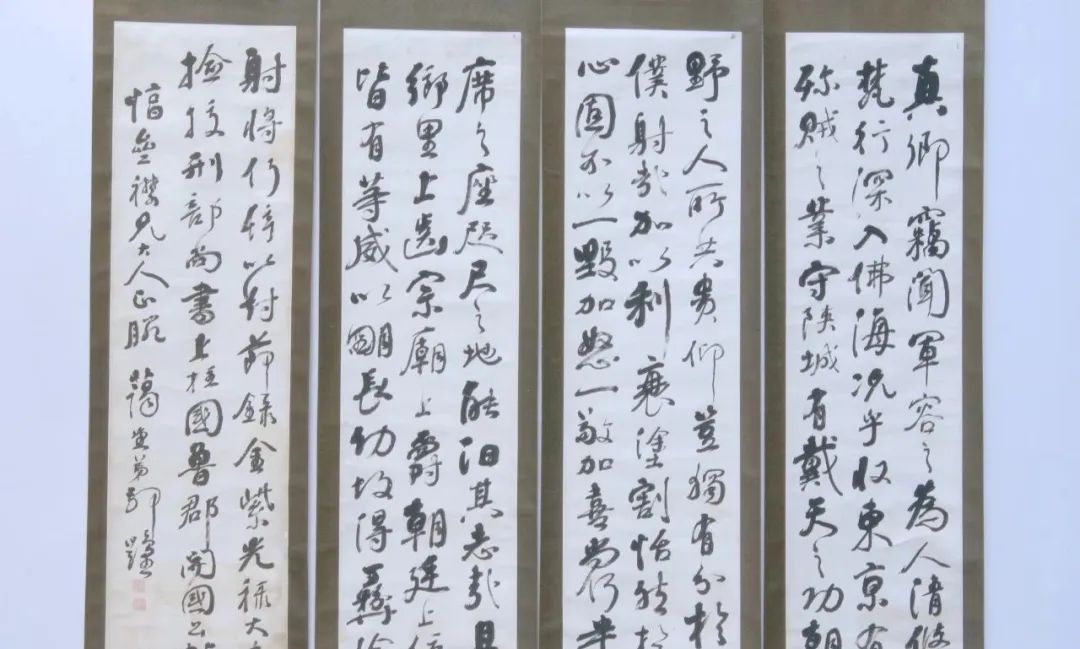 真卿竊聞軍容之為人清修
梵行深入佛海况乎收東京有
殄賊之業守陝城有戴天之功朝
野之人所共貴仰豈獨有分於
僕射哉加以利衰塗割恬然於
心固不以一毀加怒一敬加喜尚何半
席之座咫尺之地能汩其志哉且
鄉里上齒宗廟上爵朝廷上位
皆有等威以明長幼故得彝倫
射將行辭以對節錄金紫光祿大
檢校刑部尚書上柱國魯郡開國公
襟兄大人正腕 藹堂弟